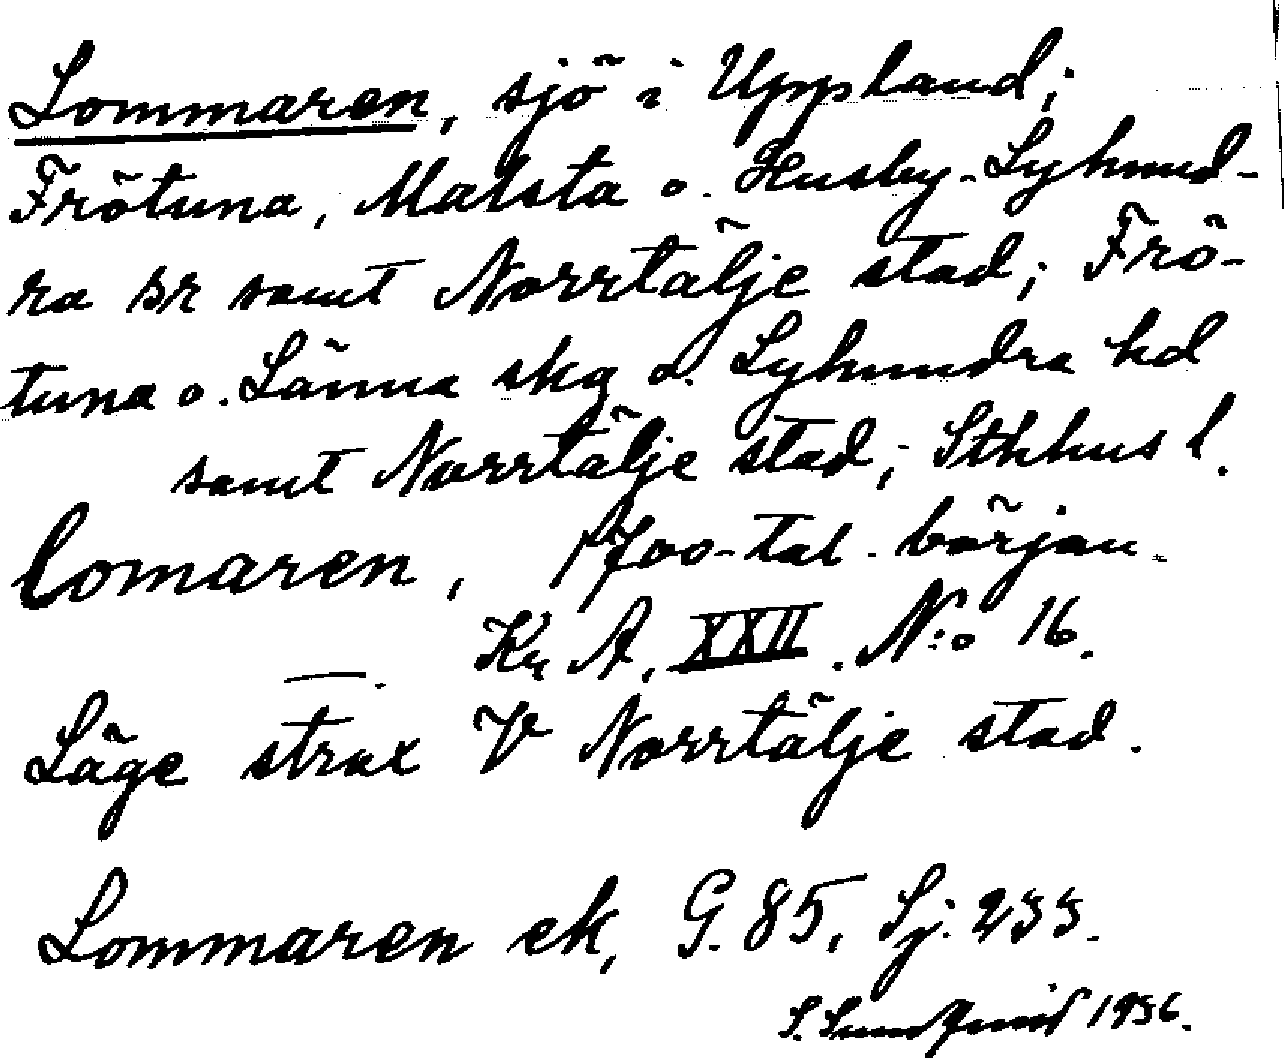 Lommaren, sjö i Uppland;
Frötuna, Malsta o. Husby-Lyhund-
ra sr samt Norrtälje stad; Frö-
tuna o. Länna skg o. Lyhundra hd
samt Norrtälje stad; Sthhus l.
Lomaren, 1700-tal. början.
Kr A. XXII. N:o 16.
Läge strax V Norrtälje stad.
Lommaren ek, G. 85, Sj: 233.
S. Sundqvist 1936.